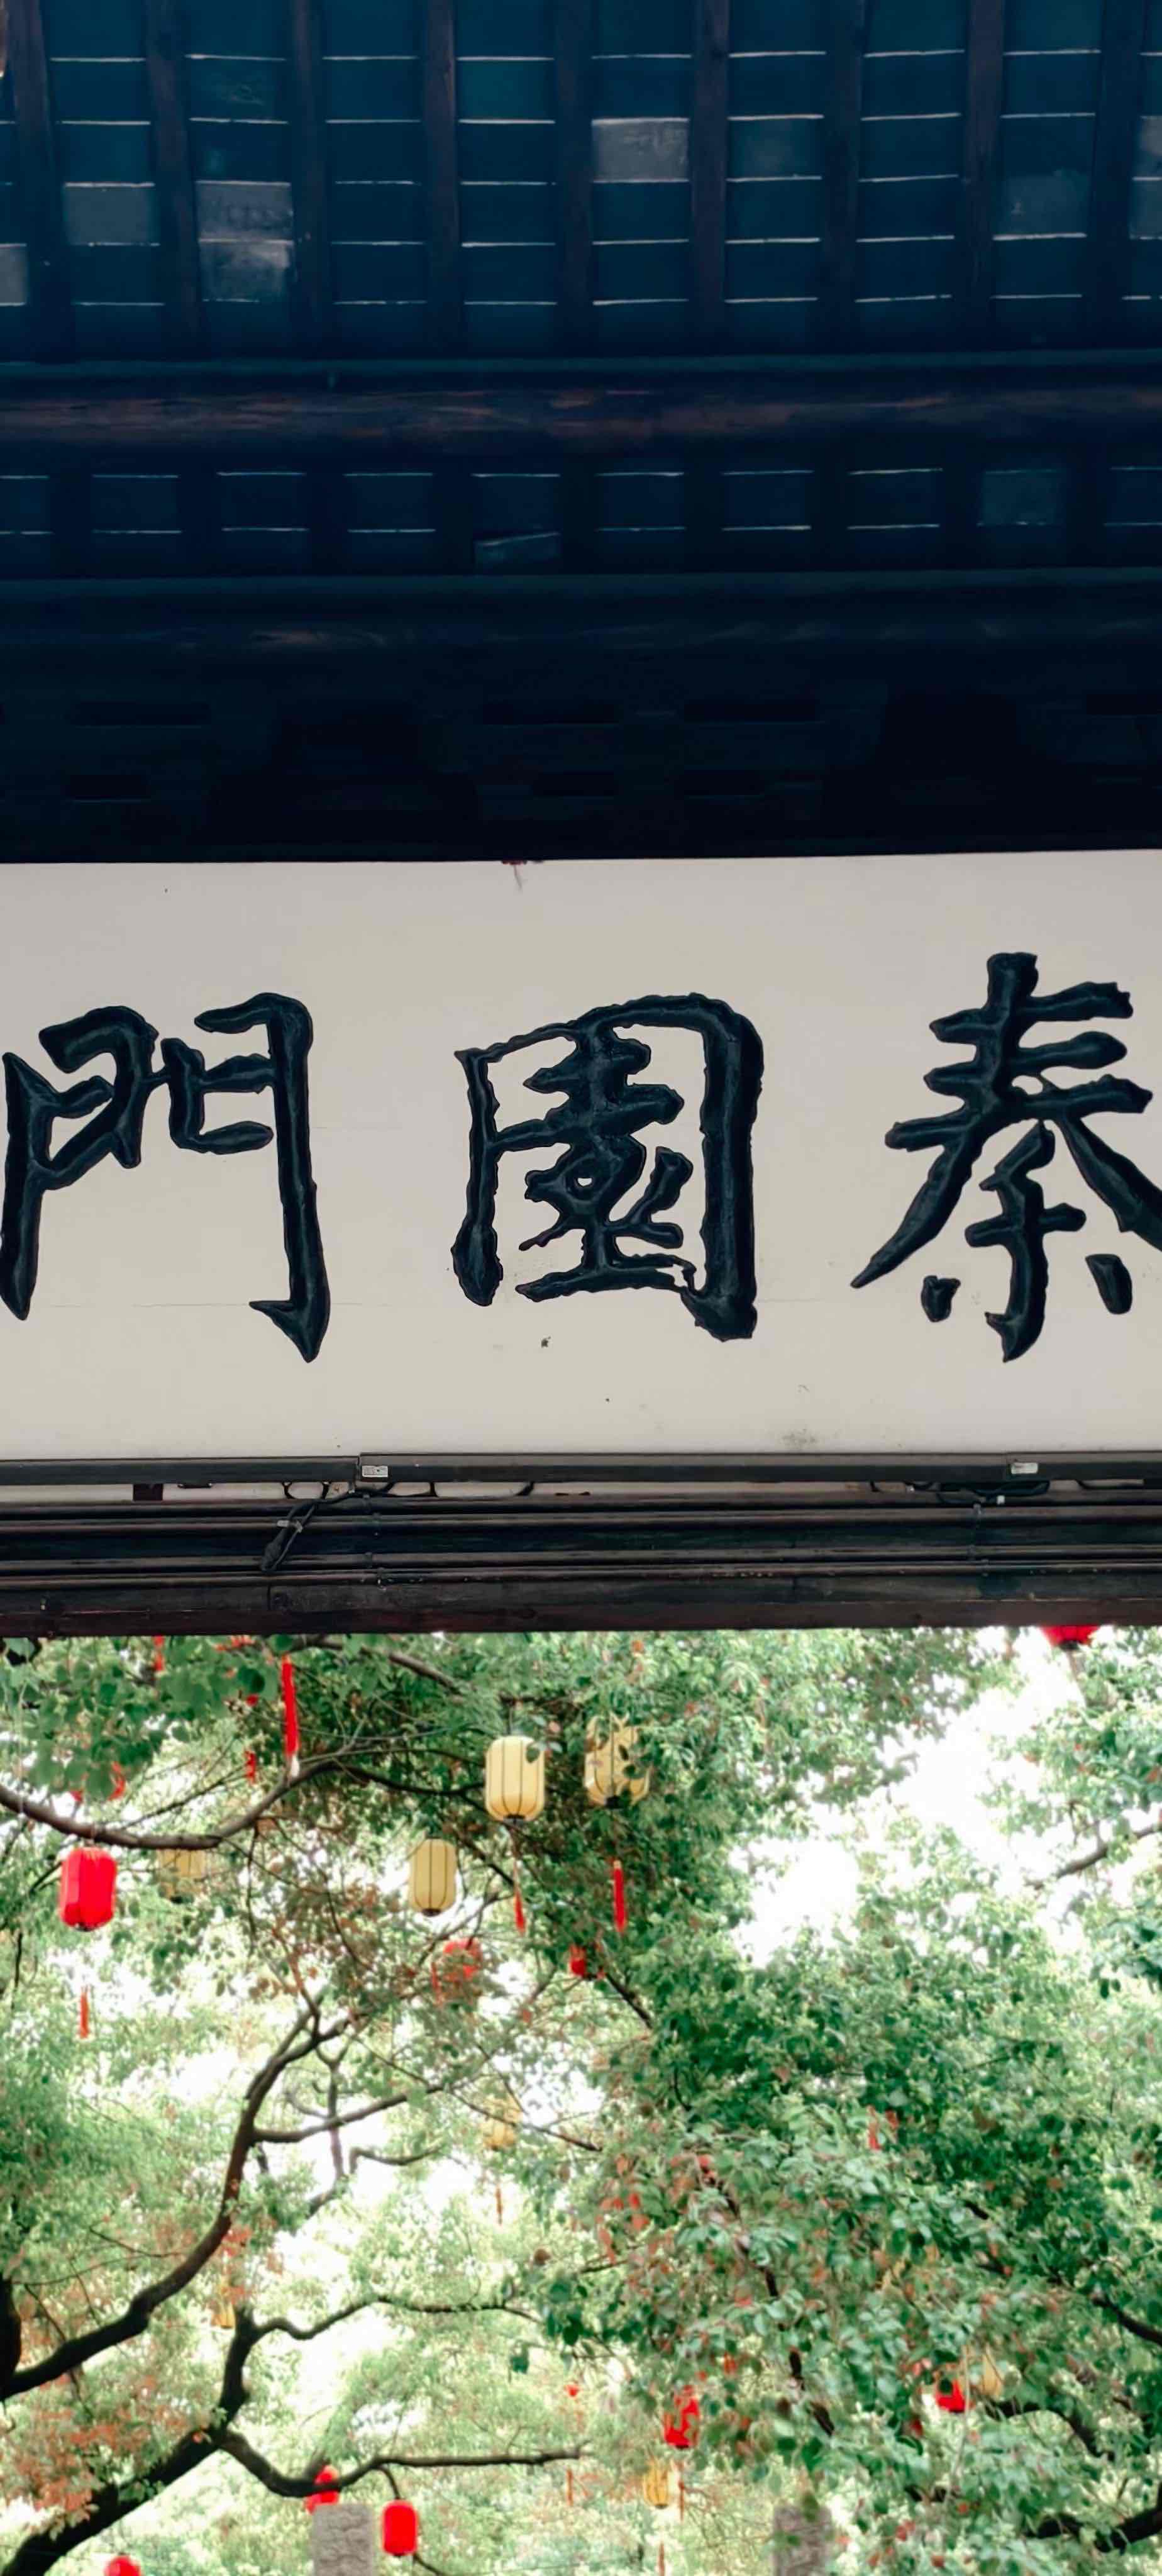 秦園門